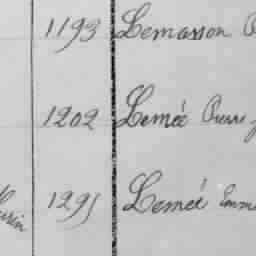 1193 Lemasson
1202 Lemée Pierre
1295 Lemée Emma